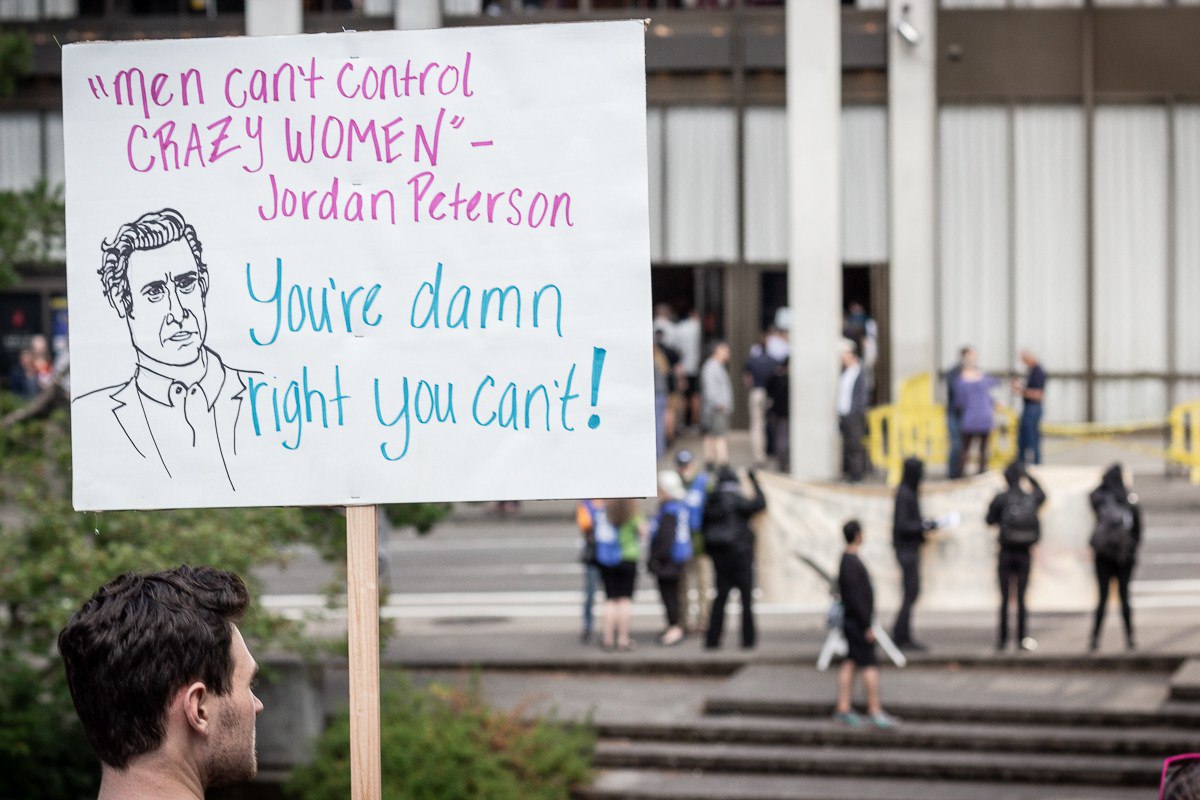 "men can't control
CRAZY WOMEN"-
Jordan Peterson
You're damn
right you can't!